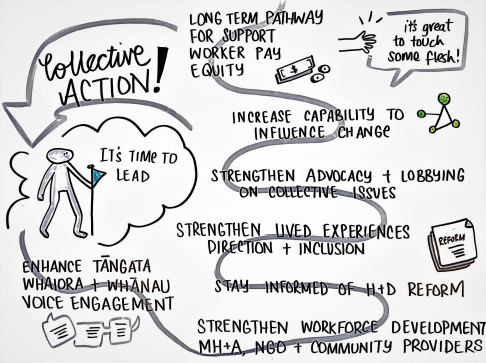 Collective
ACTION!
LONG TERM PATHWAY
FOR SUPPORT
WORKER PAY
EQUITY
$
it's great
to touch
some flesh!
INCREASE CAPABILITY TO
INFLUENCE CHANGE
IT'S TIME TO
LEAD
STRENGTHEN ADVOCACY + LOBBYING
ON COLLECTIVE ISSUES
STRENGTHEN LIVED EXPERIENCES
DIRECTION + INCLUSION
REFORM
ENHANCE TĀNGATA
WHAIORA + WHĀNAU
VOICE ENGAGEMENT
STAY INFORMED OF H+D REFORM
STRENGTHEN WORKFORCE DEVELOPMENT
MH+A, NGO + COMMUNITY PROVIDERS